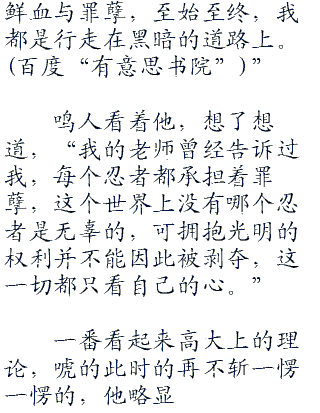 鲜血与罪孽，至始至终，我
都是行走在黑暗的道路上。
(百度“有意思书院”)”
鸣人看着他，想了想
道，“我的老师曾经告诉过
我，每个忍者都承担着罪
孽，这个世界上没有哪个忍
者是无辜的，可拥抱光明的
权利并不能因此被剥夺，这
一切都只看自己的心。”
一番看起来高大上的理
论，唬的此时的再不斩一愣
一愣的，他略显